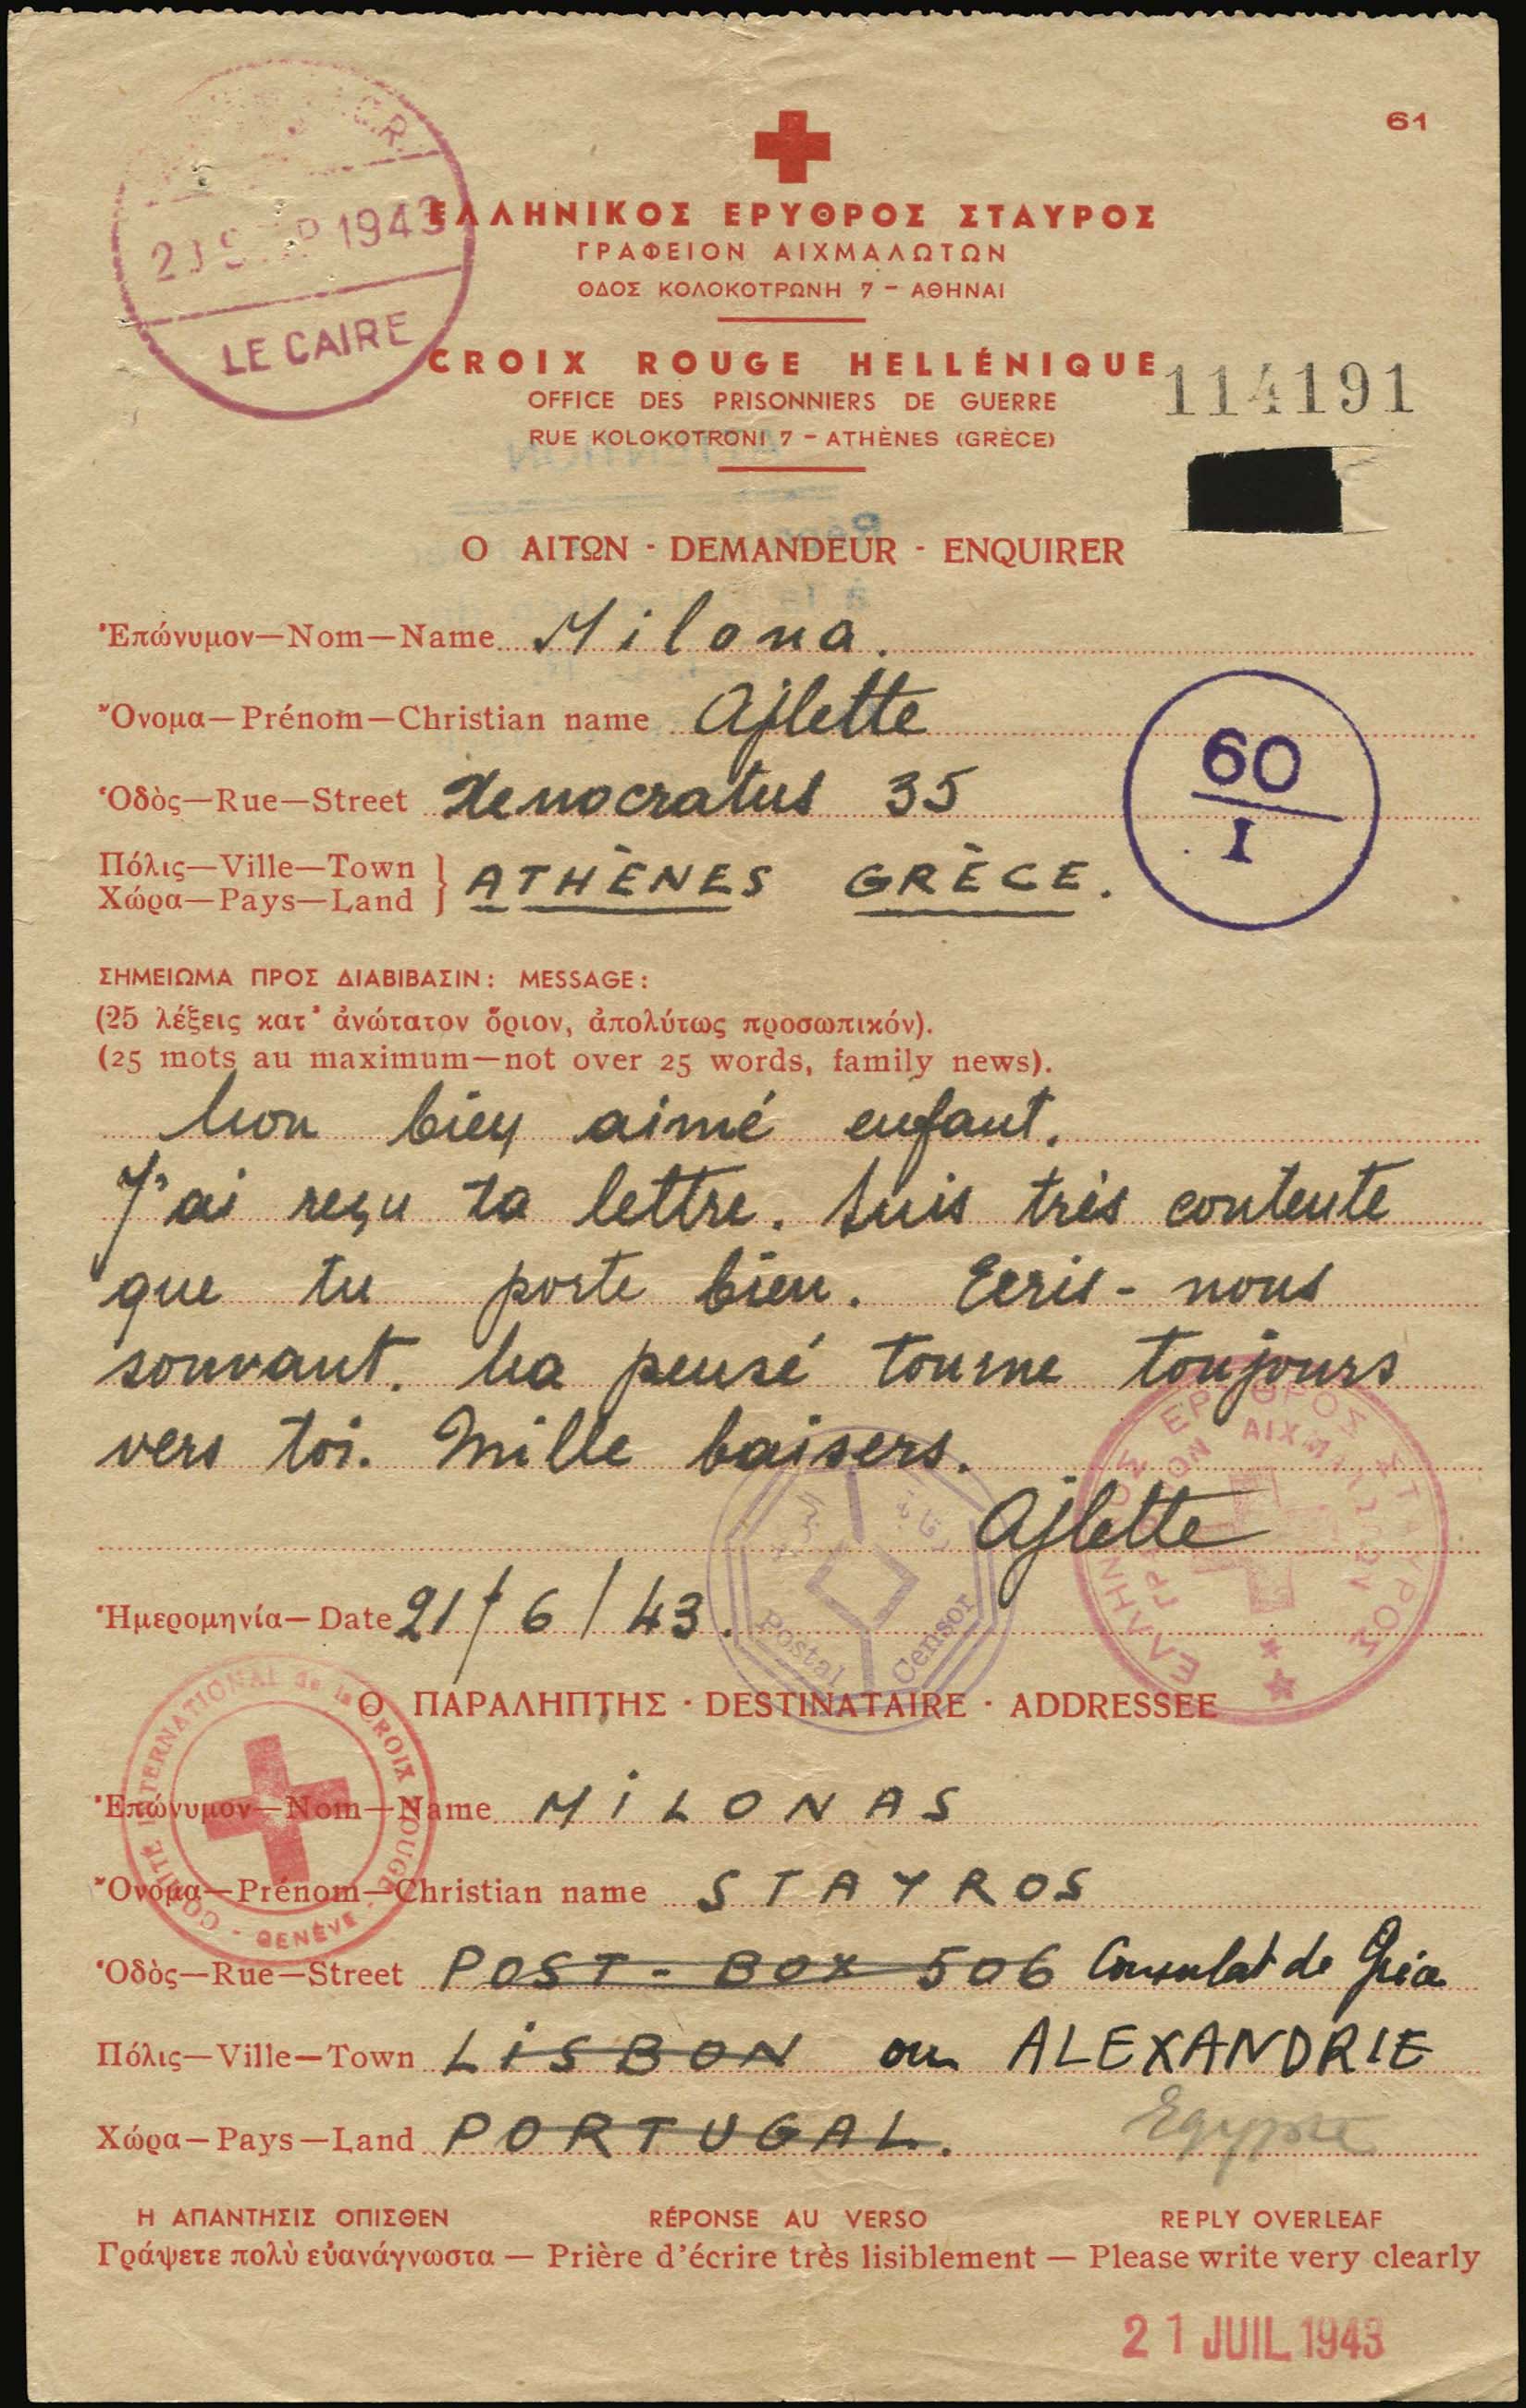 61
ΕΛΛΗΝΙΚΟΣ ΕΡΥΘΡΟΣ ΣΤΑΥΡΟΣ
ΓΡΑΦΕΙΟΝ ΑΙΧΜΑΛΩΤΩΝ
ΟΔΟΣ ΚΟΛΟΚΟΤΡΩΝΗ 7 – ΑΘΗΝΑΙ
1943
LE CAIRE
CROIX ROUGE HELLÉNIQUE
OFFICE DES PRISONNIERS DE GUERRE
RUE KOLOKOTRONI 7 – ATHÈNES (GRÈCE)
114191
Ο ΑΙΤΩΝ - DEMANDEUR - ENQUIRER
Ἐπώνυμον—Nom—Name Milona.
Ὄνομα—Prénom—Christian name Ajlette
Ὁδὸς—Rue—Street Xenocratus 35
60
I
Πόλις—Ville—Town
Χώρα—Pays—Land } ATHÈNES GRÈCE.
ΣΗΜΕΙΩΜΑ ΠΡΟΣ ΔΙΑΒΙΒΑΣΙΝ: MESSAGE:
(25 λέξεις κατ' ἀνώτατον ὅριον, ἀπολύτως προσωπικόν).
(25 mots au maximum—not over 25 words, family news).
Mon bien aimé enfant.
J'ai reçu ta lettre. Suis très contente
que tu porte bien. Ecris-nous
souvant. Ma pensé tourne toujours
vers toi. Mille baisers.
Ajlette
Ἡμερομηνία—Date 21/6/43.
Postal Censor
ΕΛΛΗΝΙΚΟΣ ΕΡΥΘΡΟΣ ΣΤΑΥΡΟΣ
Ο ΠΑΡΑΛΗΠΤΗΣ · DESTINATAIRE · ADDRESSEE
COMITÉ INTERNATIONAL de la CROIX ROUGE - GENÈVE -
Ἐπώνυμον—Nom—Name MILONAS
Ὄνομα—Prénom—Christian name STAYROS
Ὁδὸς—Rue—Street POST-BOX 506 Consulat de Grèce
Πόλις—Ville—Town LISBON ou ALEXANDRIE
Χώρα—Pays—Land PORTUGAL. Egypte
Η ΑΠΑΝΤΗΣΙΣ ΟΠΙΣΘΕΝ RÉPONSE AU VERSO REPLY OVERLEAF
Γράψετε πολὺ εὐανάγνωστα — Prière d'écrire très lisiblement — Please write very clearly
21 JUIL 1943